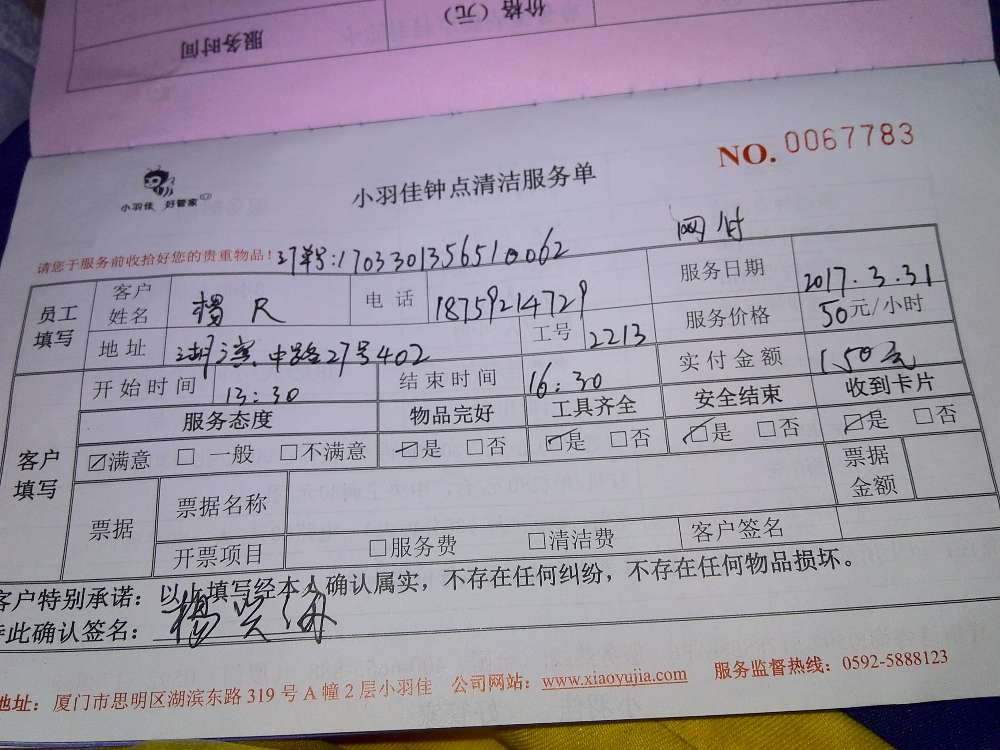 价格（元）
服务时间
NO. 0067783
小羽佳 好管家
小羽佳钟点清洁服务单
网付
请您于服务前收拾好您的贵重物品！订单号:1703301356510062
员工填写 客户姓名 杨 电话 18759214729 服务日期 2017.3.31
地址 湖滨中路27号402 工号 2213 服务价格 50元/小时
客户填写 开始时间 13:30 结束时间 16:30 实付金额 150元
服务态度 物品完好 工具齐全 安全结束 收到卡片
☑满意 □一般 □不满意 ☑是 □否 ☑是 □否 ☑是 □否 ☑是 □否
票据 票据名称 票据金额
开票项目 □服务费 □清洁费 客户签名
客户特别承诺：以上填写经本人确认属实，不存在任何纠纷，不存在任何物品损坏。
此确认签名： 杨
地址：厦门市思明区湖滨东路 319 号 A 幢 2 层小羽佳 公司网站：www.xiaoyujia.com 服务监督热线：0592-5888123